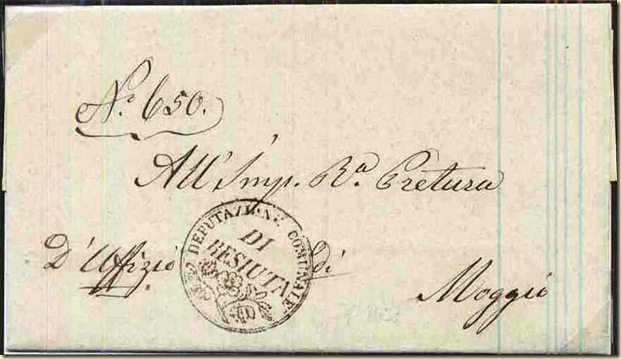 N.º 650.
All' Imp. R.ª Pretura
D'Uffizio di
DEPUTAZIONE COMUNALE
DI
RESIUTA
Moggio